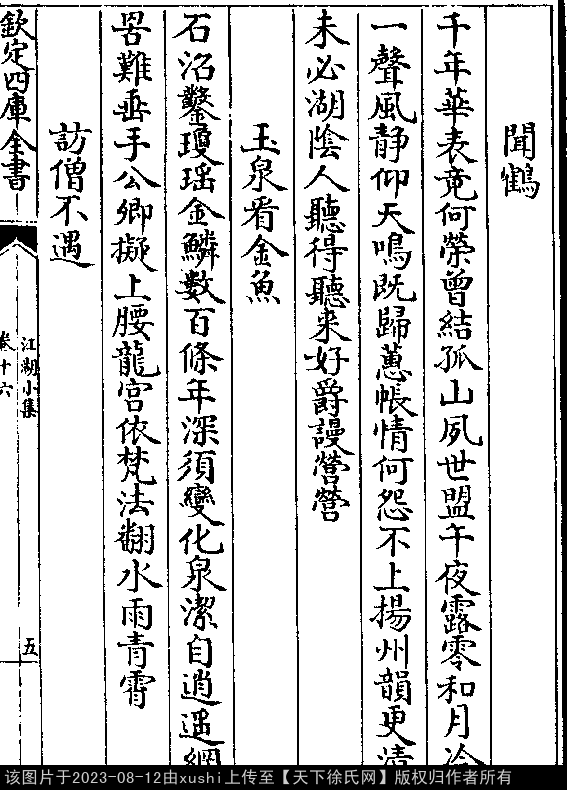 聞鶴
千年華表竟何榮曾結孤山夙世盟午夜露零和月冷
一聲風静仰天鳴既歸蕙帳情何怨不上揚州韻更清
未必湖陰人聽得聽来好爵謾營營
玉泉看金魚
石沼鑿瓊瑶金鱗數百條年深須變化泉潔自逍遥網
罟難垂手公卿擬上腰龍宫依梵法翻水雨青霄
訪僧不遇
欽定四庫全書
江湖小集
卷十六
五
该图片于2023-08-12由xushi上传至【天下徐氏网】版权归作者所有